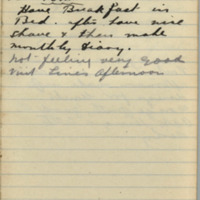 Have Breakfast in
Bed. after have nice
shave & then make
monthly diary.
Not feeling very good
Afternoon